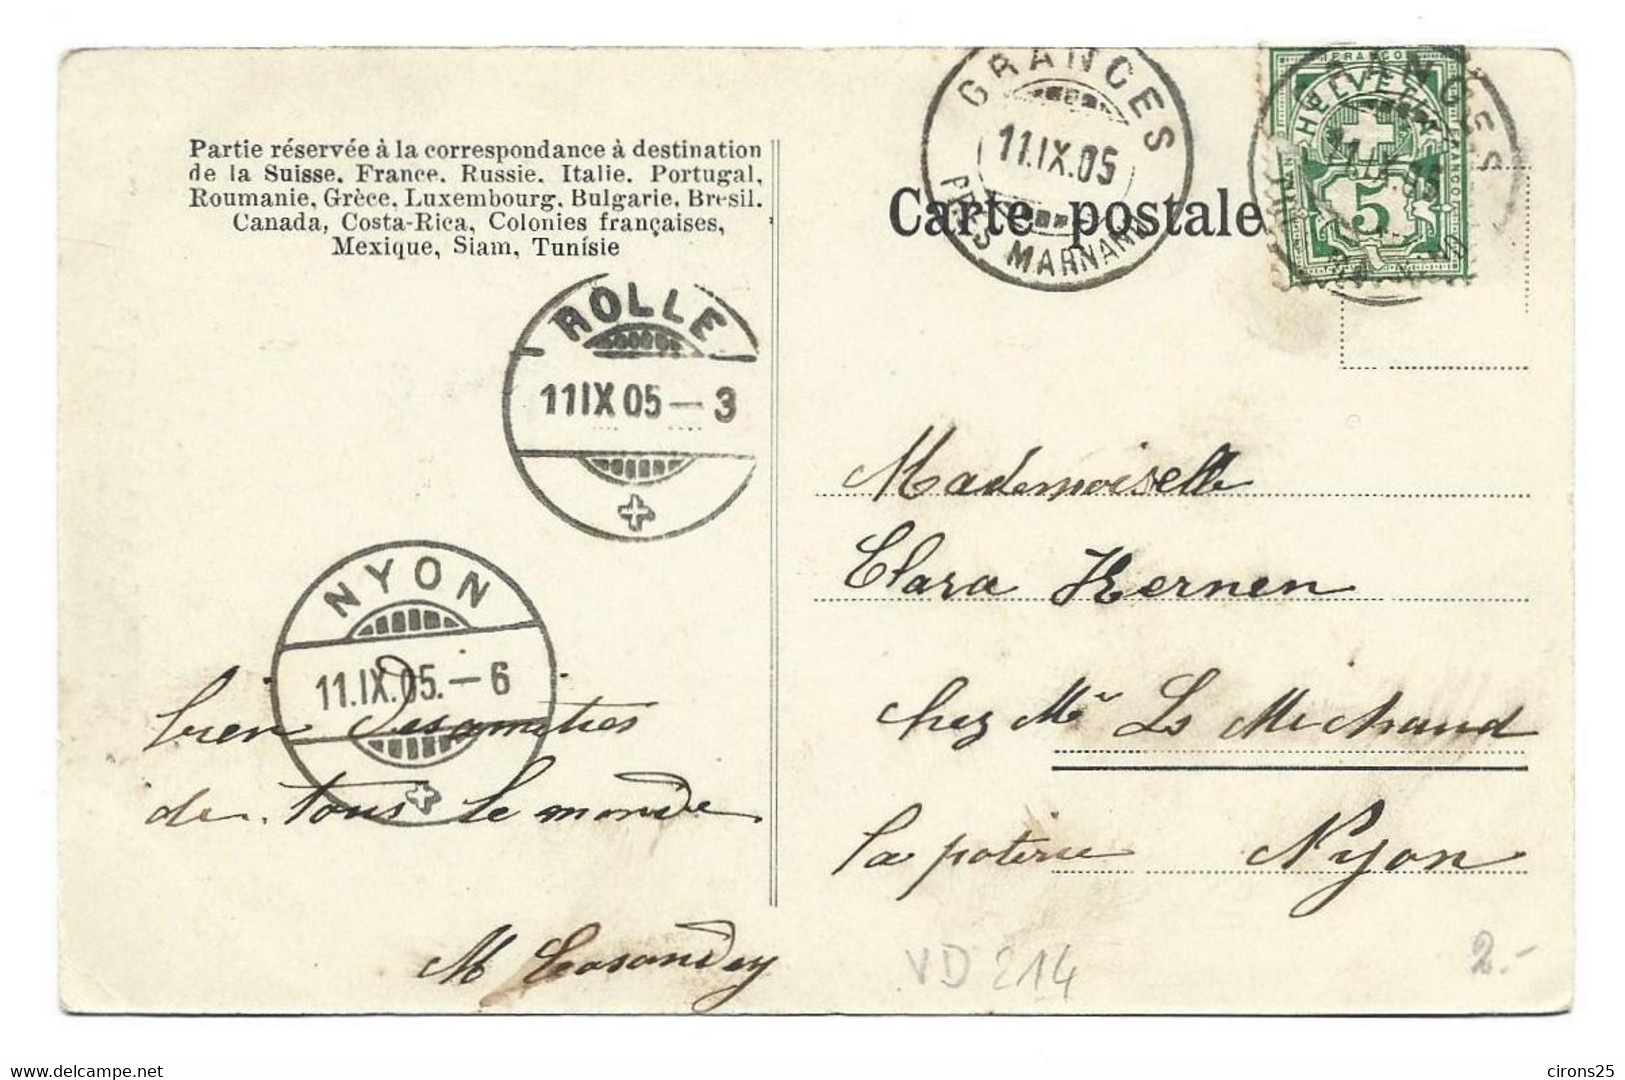 Partie réservée à la correspondance à destination
de la Suisse. France. Russie. Italie. Portugal.
Roumanie, Grèce, Luxembourg, Bulgarie, Bresil.
Canada, Costa-Rica, Colonies françaises,
Mexique, Siam, Tunisie
GRANGES
11.IX.05
PRÈS MARNAND
Carte postale
FRANCO
HELVETIA
11.IX.05
5
ROLLE
11IX05-3
NYON
11.IX.05.-6
Mademoiselle
Clara Kernen
chez Mr Ls Michaud
la poterie Nyon
bien des amitiés
de tous le monde
M Cosandey
VD 214
2.-
delcampe.net
cirons25